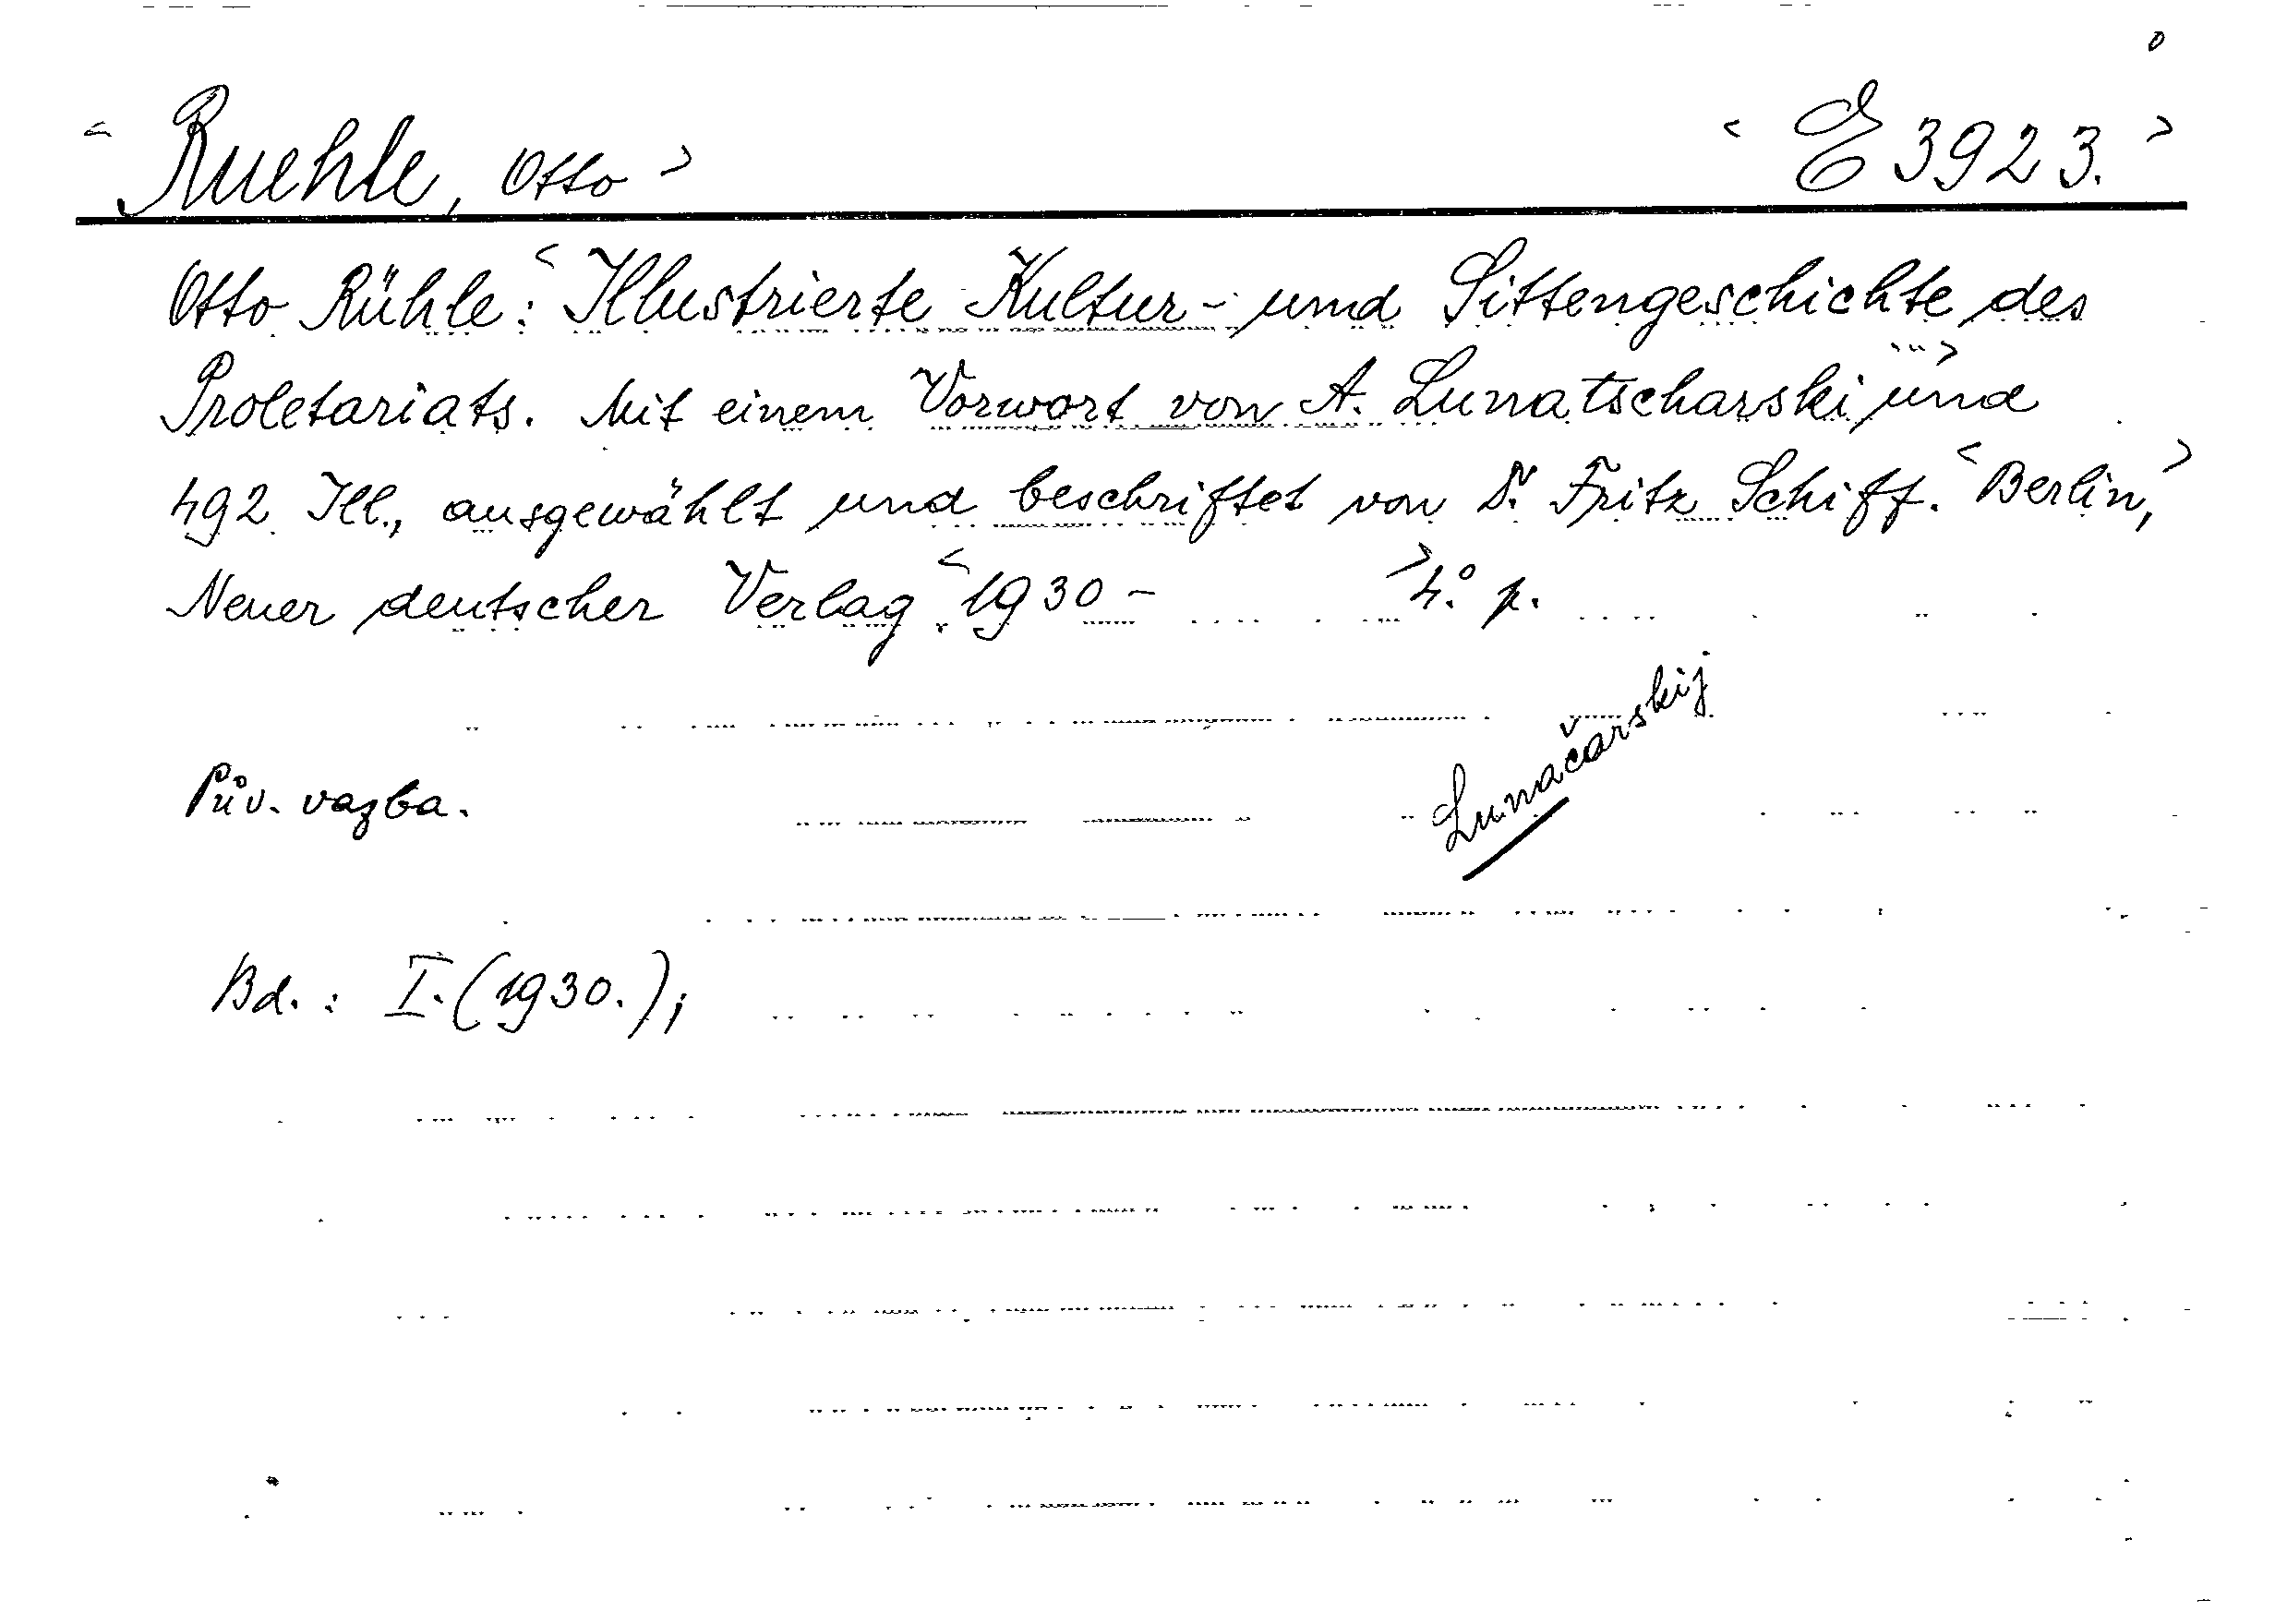 o
< Ruehle, Otto > < E 3923. >
Otto Rühle: < Illustrierte Kultur- und Sittengeschichte des
Proletariats. Mit einem Vorwort von A. Lunatscharski > und
492 Ill., ausgewählt und beschriftet von Dr. Fritz Schiff. < Berlin, >
Neuer deutscher Verlag < 1930 - > 4.° p.
Lunačarskij
Pův. vazba.
Bd. : I. (1930.);